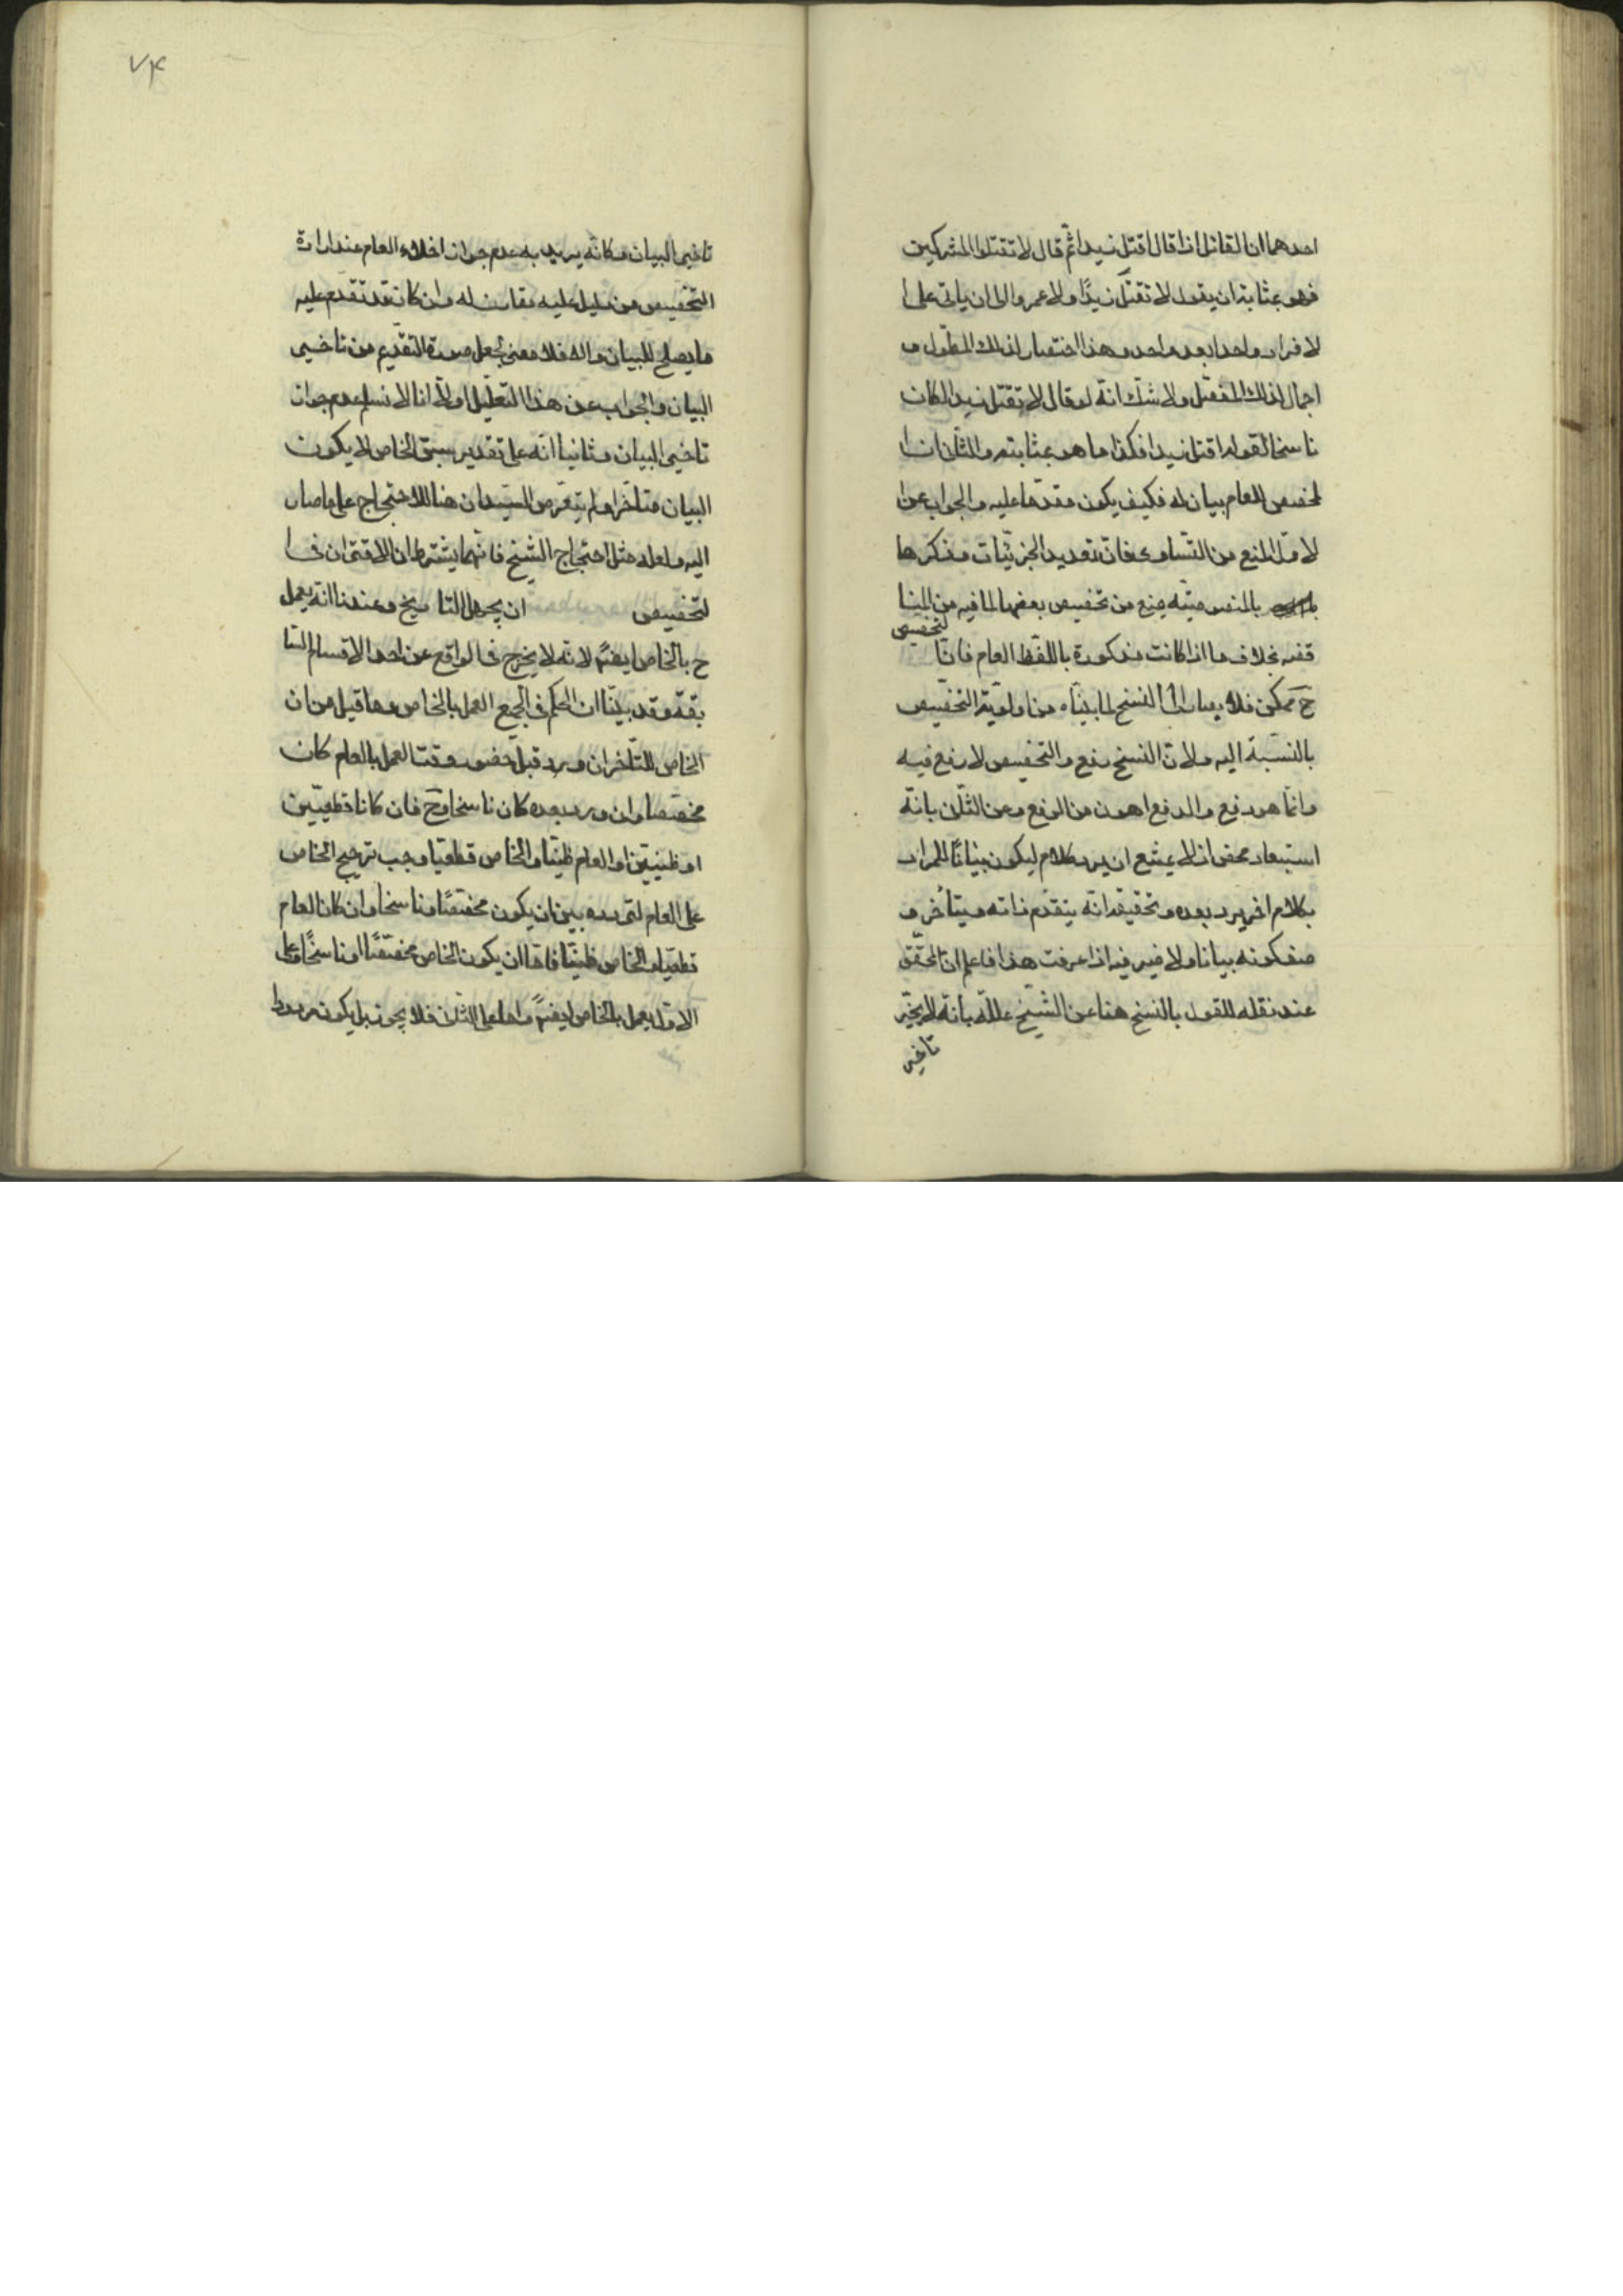 احدهما ان القائل اذا قال اقتل زيدا ثم قال لا تقتلوا المشركين
فهو بمثابة ان يقول لا تقتل زيدًا ولا عمروا الى ان ياتى على ا
لافراد واحدا بعد واحد وهذا اختصار لذلك المطول و
اجمال لذلك المفصّل ولا شك انه لو قال لا تقتل زيدا لكان
ناسخا لقوله اقتل زيدا فكذا ما هو بمثابته والثانى ان ا
لمخصص للعام بيان له فكيف يكون مقدّما عليه والجواب عن ا
لاوّل المنع من التساوى فانّ تعديد الجزئيّات وذكرها
بالمنصوصيّة يمنع من تخصيص بعضها لما فيه من المنا
قضه بخلاف ما اذا كانت مذكورة باللفظ العام فانّ ا
لتخصيص
ح ممكن فلا يصار الى النسخ لما بيّناه من اولويّة التخصيص
بالنسبة اليه ولانّ النسخ رفع والتخصيص لا رفع فيه
وانّما هو دفع والدفع اهون من الرفع وعن الثانى بانّه
استبعاد محض اذ لا يمتنع ان يرد كلام ليكون بيانًا للمراد
بكلام اخر يرد بعده وتحقيقه انّه يتقدّم ذاته ويتأخّر و
صف كونه بيانا ولا ضير فيه اذا عرفت هذا فاعلم ان المحقّق
عند نقله للقول بالنسخ هنا عن الشيخ علّله بانّه لا يجيّز
تاخير
٧٤
تاخير البيان وكانّه يريد به عدم جواز اخلاء العام عند ارادة
التخصيص من دليل عليه مقارن له وان كان قد تقدم عليه
ما يصلح للبيان والّا فلا معنى لجعل صورة التقديم من تاخير
البيان والجواب عن هذا التعليل اولًا انا لا نسلم عدم جواز
تاخير البيان وثانيا انّه على تقدير سبق الخاص لا يكون
البيان متاخّرا ولم يتعرّض السيّدان هنا للاحتجاج على ما صار
اليه ولعله مثل احتجاج الشيخ فانّهما يشترطان الاقتران فى ا
لتخصيص ان يجهل التاريخ وعندنا انّه يعمل
ح بالخاص ايضًا لانّه لا يخرج فى الواقع عن احد الاقسام السّا
بقة وقد بيّنا ان الحكم فى الجميع العمل بالخاص وما قيل من ان
الخاص المتاخر ان ورد قبل حضور وقت العمل بالعام كان
مخصّصا وان ورد بعده كان ناسخا وح فان كانا قطعيّين
او ظنيّين او العام ظنيّا والخاص قطعيّا وجب ترجيح الخاص
على العام لتردده بين ان يكون مخصّصًا وناسخا وان كان العام
قطعيّا والخاص ظنيّا فامّا ان يكون الخاص مخصّصًا او ناسخًا وعلى
الاوّل يعمل بالخاص ايضًا واما على الثانى فلا يجوز بل يكون مردودا